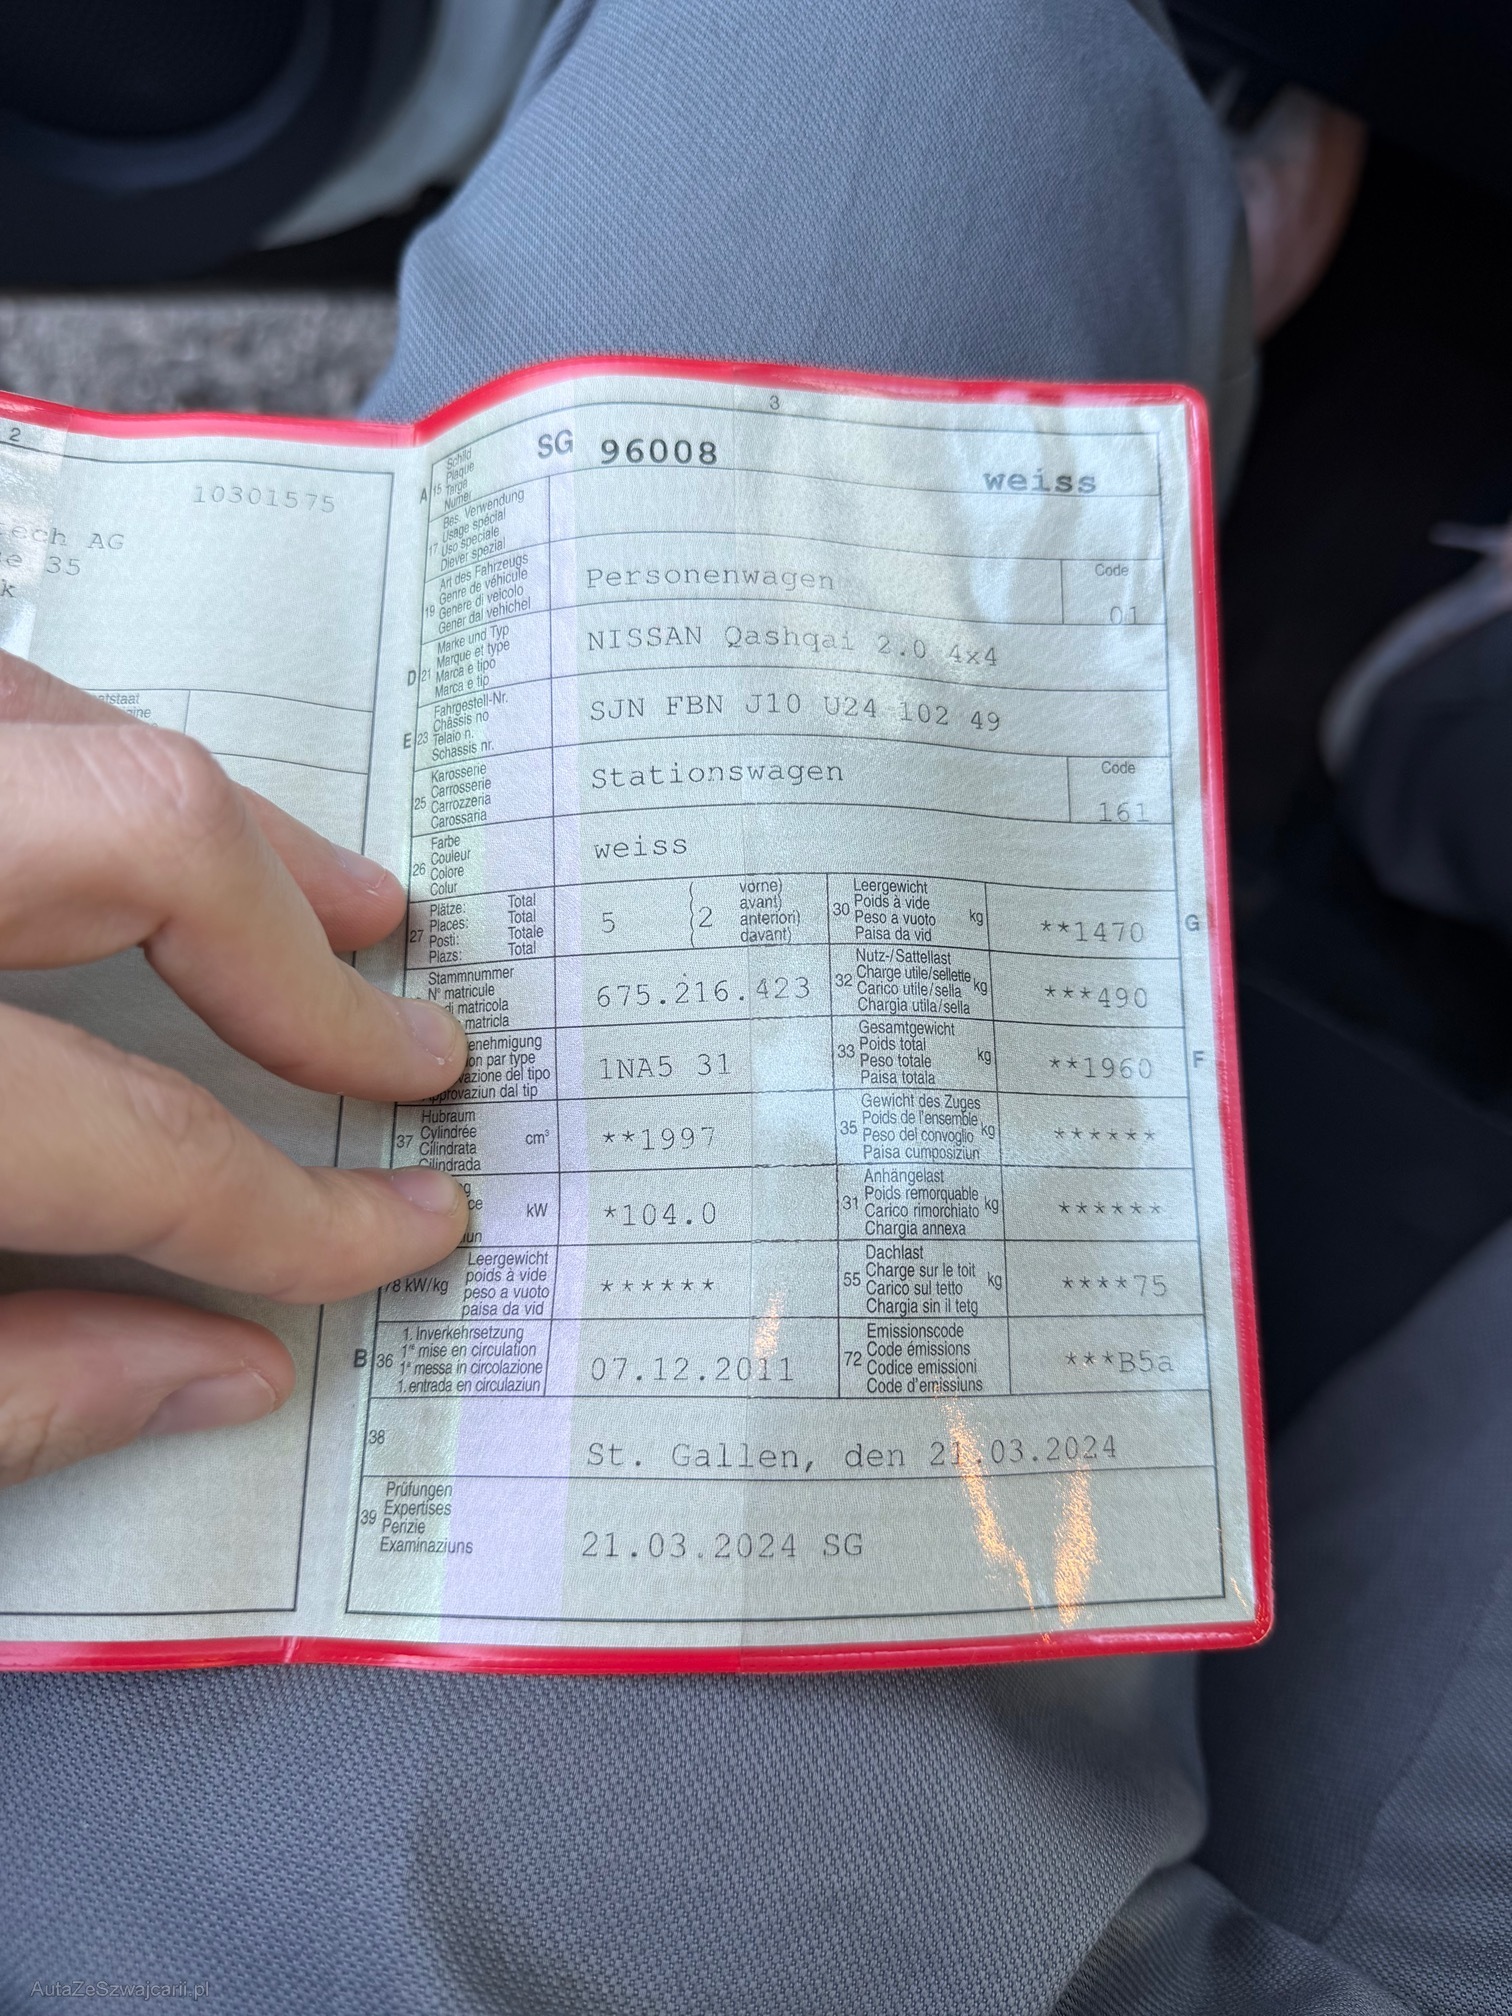 2
10301575
ech AG
e 35
k
tstaat
ine
3
A 15 Schild
Plaque
Targa
Numer
SG 96008
weiss
17 Bes. Verwendung
Usage spécial
Uso speciale
Diever spezial
19 Art des Fahrzeugs
Genre de véhicule
Genere di veicolo
Gener dal vehichel
Personenwagen
Code
01
D 21 Marke und Typ
Marque et type
Marca e tipo
Marca e tip
NISSAN Qashqai 2.0 4x4
E 23 Fahrgestell-Nr.
Châssis no
Telaio n.
Schassis nr.
SJN FBN J10 U24 102 49
25 Karosserie
Carrosserie
Carrozzeria
Carossaria
Stationswagen
Code
161
26 Farbe
Couleur
Colore
Colur
weiss
27 Plätze: Total
Places: Total
Posti: Totale
Plazs: Total
5 (2 vorne)
avant)
anteriori)
davant)
30 Leergewicht
Poids à vide
Peso a vuoto
Paisa da vid
kg
**1470
G
Stammnummer
N° matricule
di matricola
matricla
675.216.423
32 Nutz-/Sattellast
Charge utile/sellette
Carico utile/sella
Chargia utila/sella
kg
***490
enehmigung
on par type
vazione del tipo
Approvaziun dal tip
1NA5 31
33 Gesamtgewicht
Poids total
Peso totale
Paisa totala
kg
**1960
F
37 Hubraum
Cylindrée
Cilindrata
Cilindrada
cm³
**1997
35 Gewicht des Zuges
Poids de l'ensemble
Peso del convoglio
Paisa cumposiziun
kg
******
g
ce
un
kW
*104.0
31 Anhängelast
Poids remorquable
Carico rimorchiato
Chargia annexa
kg
******
78 kW/kg
Leergewicht
poids à vide
peso a vuoto
paisa da vid
******
55 Dachlast
Charge sur le toit
Carico sul tetto
Chargia sin il tetg
kg
****75
B 36 1. Inverkehrsetzung
1re mise en circulation
1a messa in circolazione
1. entrada en circulaziun
07.12.2011
72 Emissionscode
Code émissions
Codice emissioni
Code d'emissiuns
***B5a
38
St. Gallen, den 21.03.2024
39 Prüfungen
Expertises
Perizie
Examinaziuns
21.03.2024 SG
AutaZeSzwajcarii.pl